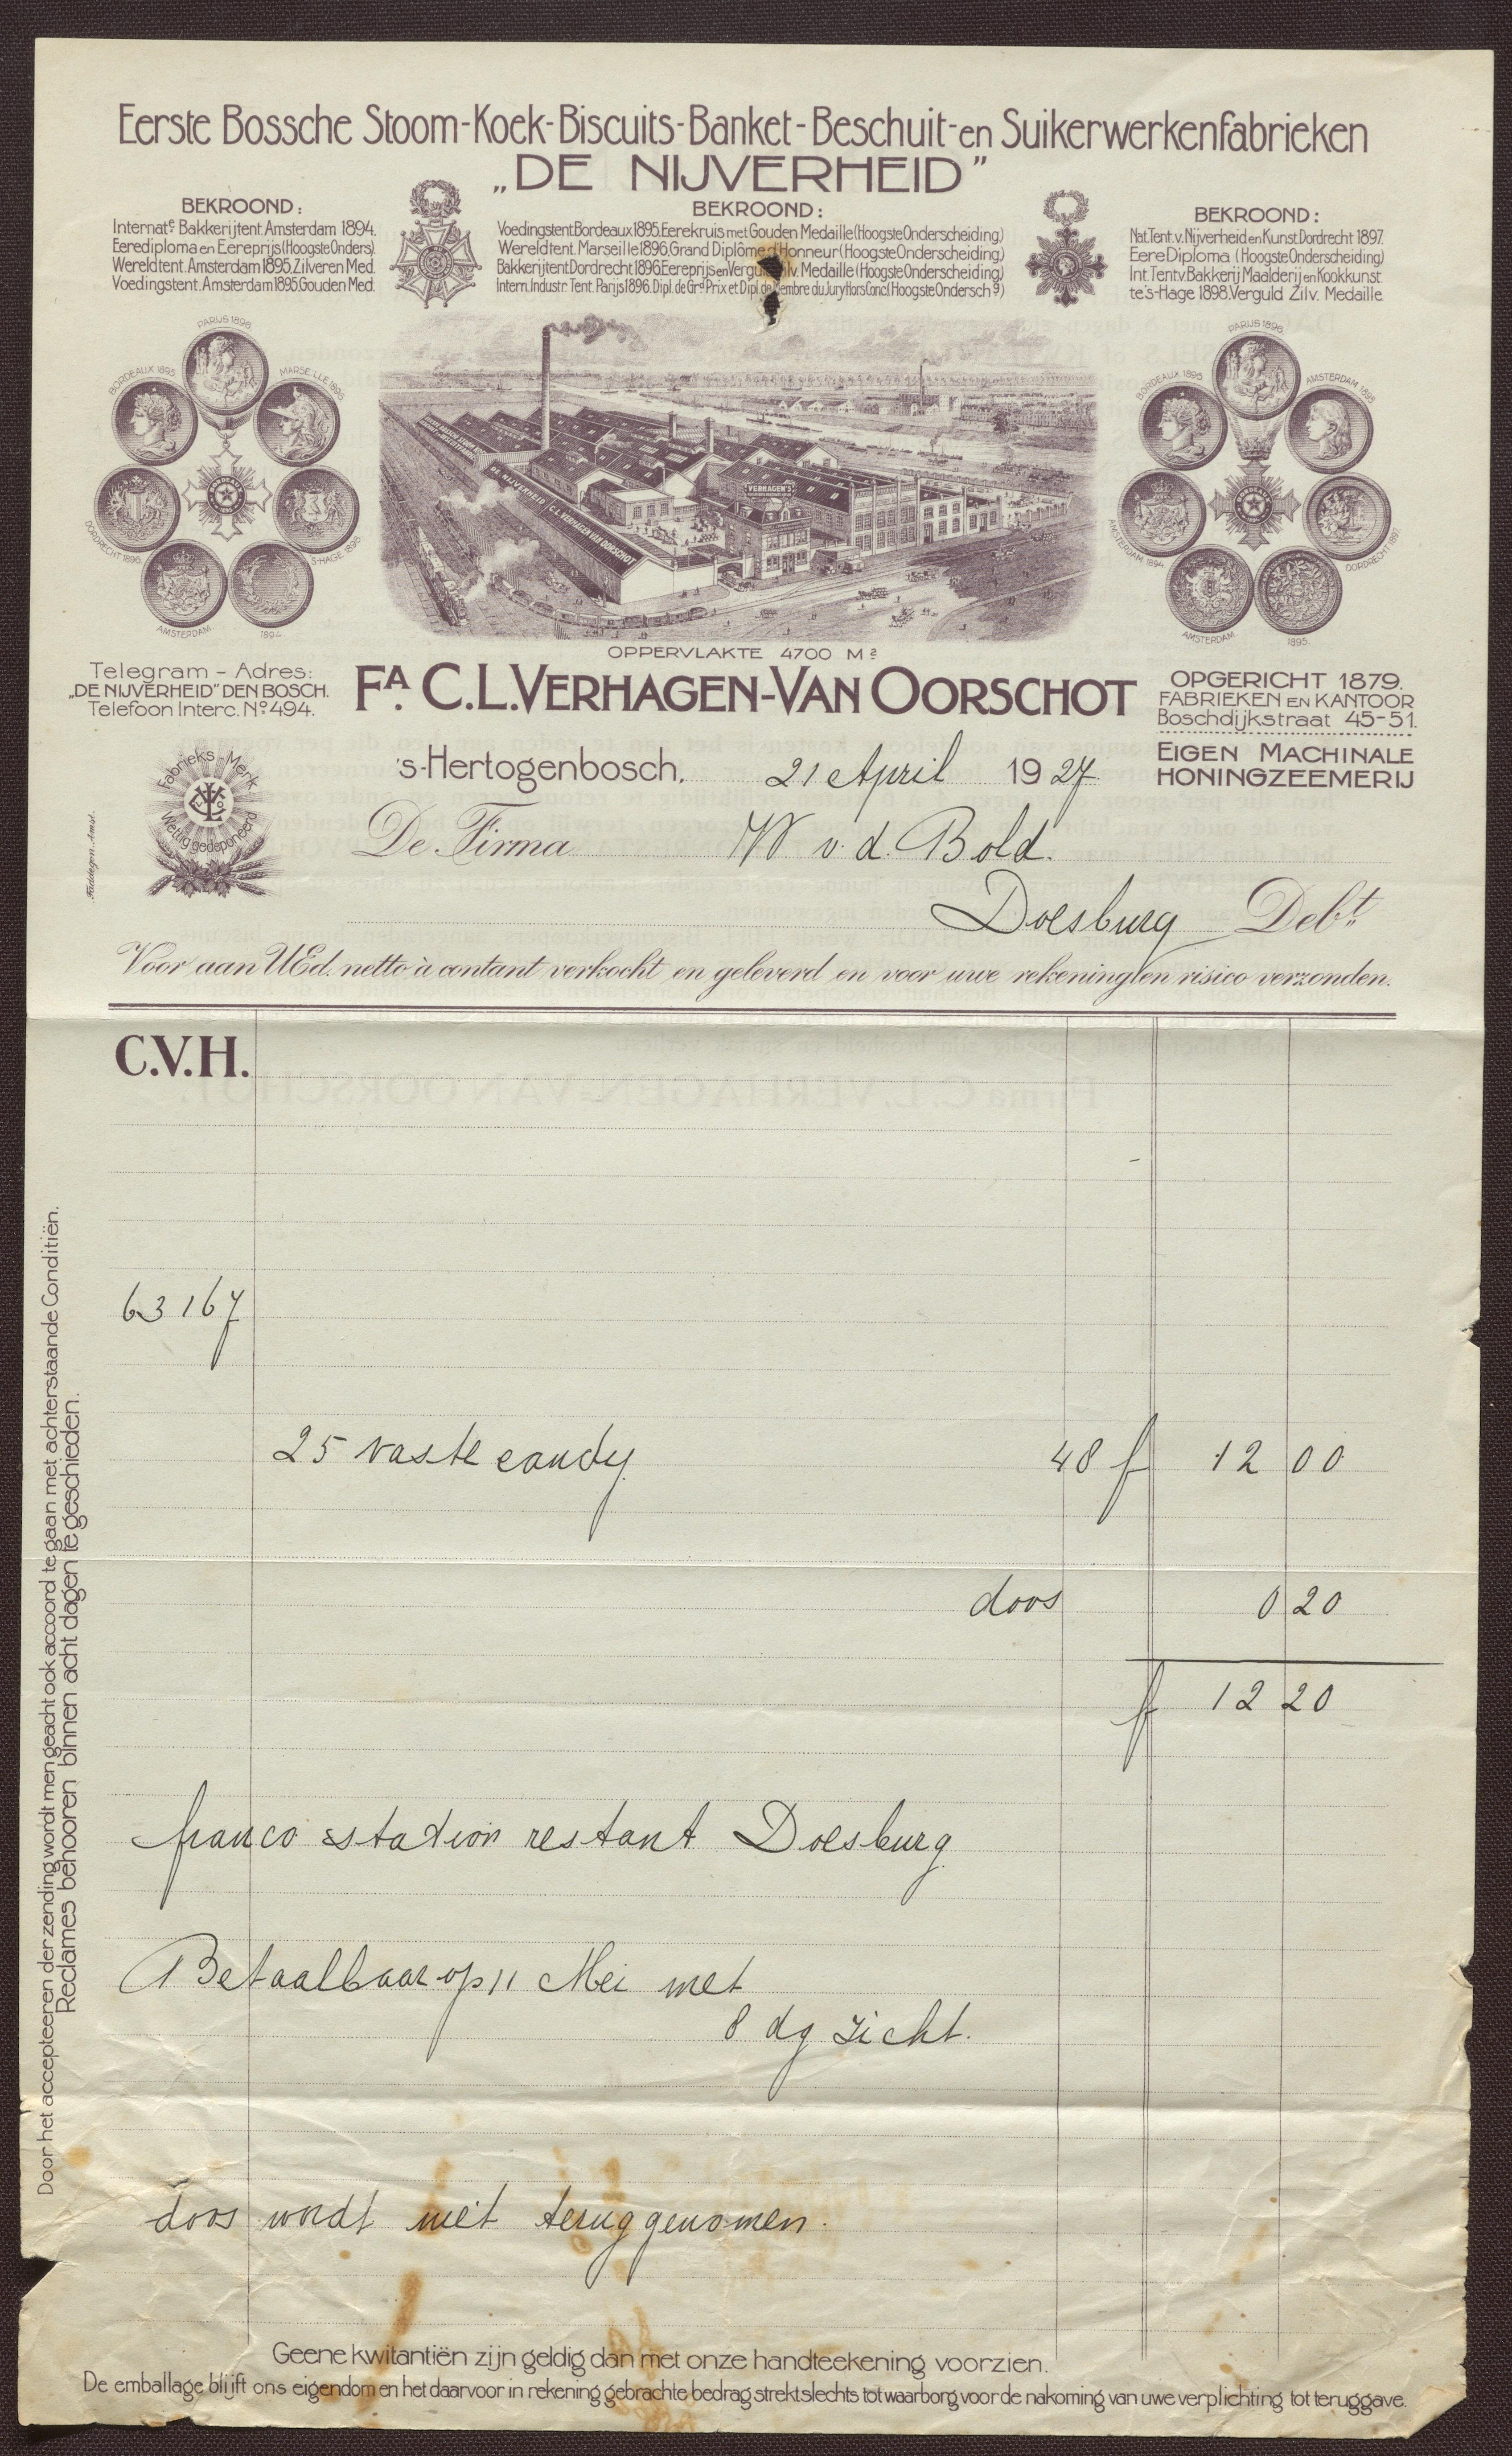 Eerste Bossche Stoom-Koek-Biscuits-Banket-Beschuit-en Suikerwerkenfabrieken
„DE NIJVERHEID”
BEKROOND:
Internate Bakkerijtent. Amsterdam 1894.
Eerediploma en Eereprijs (Hoogste Onders).
Wereldtent. Amsterdam 1895. Zilveren Med.
Voedingstent. Amsterdam 1895. Gouden Med.
BEKROOND:
Voedingstent Bordeaux 1895. Eerekruis met Gouden Medaille (Hoogste Onderscheiding)
Wereldtent. Marseille 1896. Grand Diplôme d'Honneur (Hoogste Onderscheiding)
Bakkerijtent Dordrecht 1896. Eereprijs en Verguld Zilv. Medaille (Hoogste Onderscheiding)
Intern. Industr. Tent. Parijs 1896. Dipl. de Grd Prix et Dipl. de Membre du Jury Hors Conc. (Hoogste Ondersch g)
BEKROOND:
Nat. Tent. v. Nijverheid en Kunst. Dordrecht 1897.
Eere Diploma (Hoogste Onderscheiding)
Int. Tent. v. Bakkerij Maalderij en Kookkunst
te's-Hage 1898. Verguld Zilv. Medaille
PARIJS 1896
BORDEAUX 1895
MARSEILLE 1896
DORDRECHT 1896
'S-HAGE 1898
AMSTERDAM 1894
PARIJS 1896
BORDEAUX 1895
AMSTERDAM 1895
AMSTERDAM 1894
DORDRECHT 1897
AMSTERDAM 1895
VERHAGEN'S
DE NIJVERHEID C.L. VERHAGEN VAN OORSCHOT
OPPERVLAKTE 4700 M²
Telegram - Adres:
„DE NIJVERHEID” DEN BOSCH.
Telefoon Interc. No 494.
FA. C.L. VERHAGEN-VAN OORSCHOT
OPGERICHT 1879.
FABRIEKEN EN KANTOOR
Boschdijkstraat 45-51.
EIGEN MACHINALE
HONINGZEEMERIJ
Fabrieks-Merk
Wettig gedeponeerd
Faddegon. Amst.
's-Hertogenbosch, 21 April 1927.
De Firma W v. d. Bold.
Doesburg Debt
Voor aan UEd. netto à contant verkocht en geleverd en voor uwe rekening en risico verzonden.
C.V.H.
63167
25 vaste candy 48 f 12 00
doos 0 20
f 12 20
franco station restant Doesburg
Betaalbaar op 11 Mei met
8 dg zicht.
doos wordt niet teruggenomen.
Door het accepteeren der zending wordt men geacht ook accoord te gaan met achterstaande Conditiën.
Reclames behooren binnen acht dagen te geschieden.
Geene kwitantiën zijn geldig dan met onze handteekening voorzien.
De emballage blijft ons eigendom en het daarvoor in rekening gebrachte bedrag strekt slechts tot waarborg voor de nakoming van uwe verplichting tot teruggave.